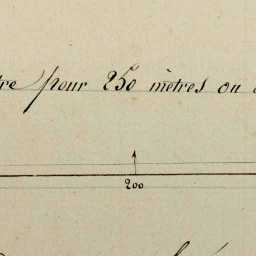 tre pour 250 mètres ou
200